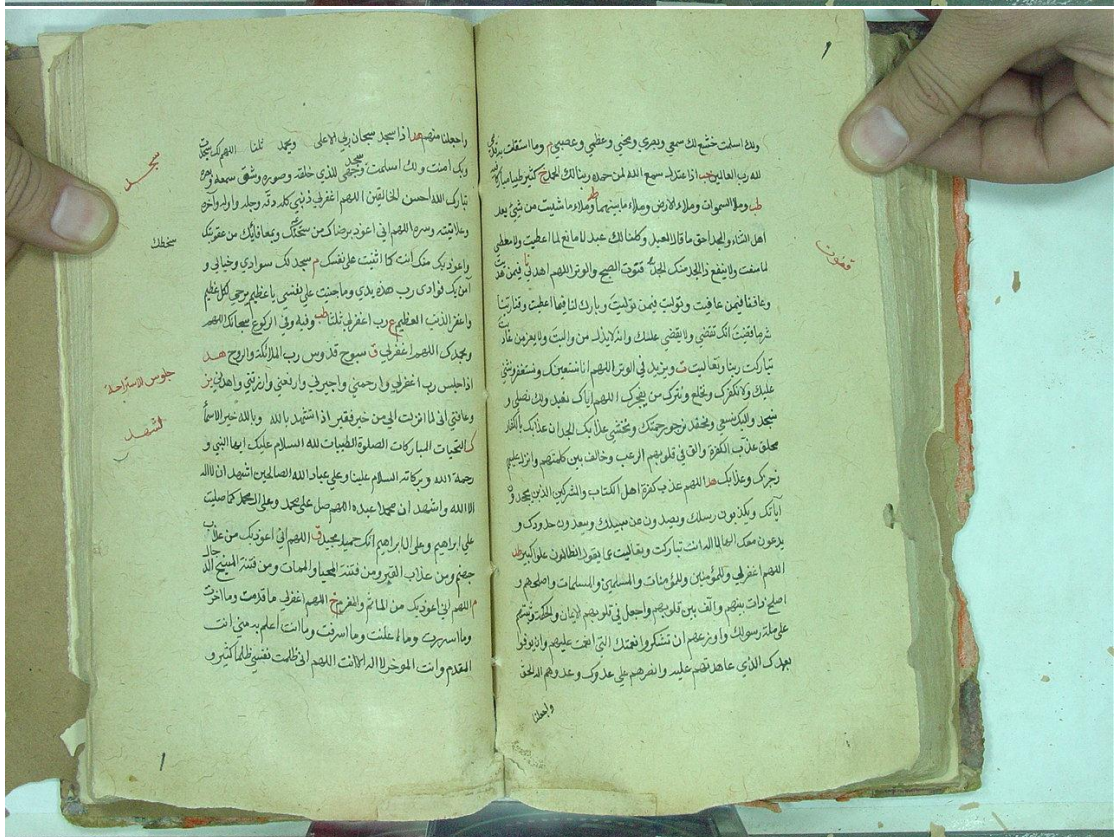 ولك اسلمت خشع لك سمعي وبصري ومخي وعظمي وعصبي م وما استقلت به قدمي
لله رب العالمين حب اذا عتدل سمع الله لمن حمده ربنا لك الحمد خ كثيرا طيبا مباركا فيه
طب وملاء السموات وملاء الارض وملاء ما بينهما وملاء ما شيت من شئ بعد
اهل الثناء والمجد احق ما قال العبد وكلنا لك عبد لا مانع لما اعطيت ولا معطي
لما منعت ولا ينفع ذا الجد منك الجد قنوت الصبح والوتر اللهم اهدني فيمن هديت
وعافنا فيمن عافيت وتولنا فيمن توليت وبارك لنا فيما اعطيت وقنا ربنا
شر ما قضيت انك تقضي ولا يقضي عليك وانه لا يذل من واليت ولا يعز من عاديت
تباركت ربنا وتعاليت ت ويزيد في الوتر اللهم انا نستعينك ونستغفرك ونثني
عليك ولا نكفرك ونخلع ونترك من يفجرك اللهم اياك نعبد ولك نصلي و
نسجد واليك نسعي ونحفد نرجو رحمتك ونخشي عذابك الجد ان عذابك بالكفار
ملحق عذب الكفرة والق في قلوبهم الرعب وخالف بين كلمتهم وانزل عليهم
زجرك وعذابك مد اللهم عذب كفرة اهل الكتاب والمشركين الذين يجحدون
آياتك ويكذبون رسلك ويصدون عن سبيلك ويتعدون حدودك و
يدعون معك الها لا اله انت تباركت وتعاليت عما يقول الظالمون علوا كبيرا
اللهم اغفر لي وللمؤمنين وللمؤمنات والمسلمين والمسلمات واصلحهم و
اصلح ذات بينهم والف بين قلوبهم واجعل في قلوبهم الايمان والحكمة وثبتهم
علي ملة رسولك واوزعهم ان تشكروا نعمتك التي انعمت عليهم وان يوفوا
بعهدك الذي عاهدتهم عليه وانصرهم علي عدوك وعدوهم اله الحق
واجعلنا
قنوت
واجعلنا منهم مد اذا سجد سبحان ربي الاعلي وبحمده ثلثا اللهم لك سجدت
وبك امنت ولك اسلمت سجد وجهي للذي خلقه وصوره وشق سمعه وبصره
تبارك الله احسن الخالقين اللهم اغفر لي ذنبي كله دقه وجله واوله وآخره
وعلانيته وسره اللهم اني اعوذ برضاك من سخطك وبمعافاتك من عقوبتك
واعوذ بك منك انت كما اثنيت علي نفسك م سجد لك سوادي وخيالي و
آمن بك فوادي رب هذه يدي وما جنيت علي نفسي يا عظيم يرجي لكل عظيم
واغفر الذنب العظيم ع رب اغفر لي ثلثا طب وفيه وفي الركوع سبحانك اللهم
وبحمدك اللهم اغفر لي ق سبوح قدوس رب الملائكة والروح هد
اذا جلس رب اغفر لي وارحمني واجبرني وارفعني وارزقني واهدني
وعافني اني لما انزلت الي من خير فقير اذا تشهد بالله وبالله خير الاسماء
التحيات المباركات الصلوة الطيبات لله السلام عليك ايها النبي و
رحمة الله وبركاته السلام علينا وعلي عباد الله الصالحين اشهد ان لا اله
الا الله واشهد ان محمدا عبده اللهم صل علي محمد وعلي ال محمد كما صليت
علي ابراهيم وعلي ال ابراهيم انك حميد مجيد ق اللهم اني اعوذ بك من عذاب
جهنم ومن عذاب القبر ومن فتنة المحيا والممات ومن فتنة المسيح الدجال
م اللهم اني اعوذ بك من الماثم والمغرم خ اللهم اغفر لي ما قدمت وما اخرت
وما اسررت وما اعلنت وما اسرفت وما انت اعلم به مني انت
المقدم وانت الموخر لا اله الا انت اللهم اني ظلمت نفسي ظلما كثيرا و
سجد
سخطك
جلوس للاستراحة
تشهد
١